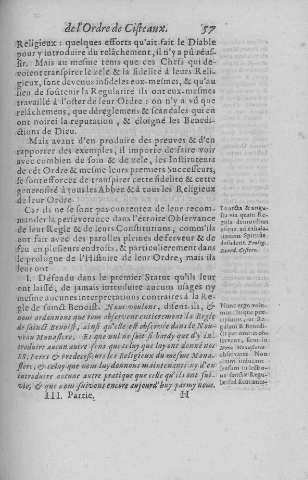 de l'Ordre de Cisteaux. 57
Religieux : quelques efforts qu'ait fait le Diable
pour y introduire du relâchement, il n'y a pû réüs-
sir. Mais au mesme tems que ces Chefs qui de-
voient transpirer le zele & la fidelité à leurs Reli-
gieux, sont devenus infideles eux-mesmes, & qu'au
lieu de soûtenir la Regularité ils ont eux-mesmes
travaillé à l'oster de leur Ordre : on n'y a vû que
relâchemens, que déreglemens & scandales qui en
ont noirci la reputation, & éloigné les Benedi-
ctions de Dieu.
Mais avant d'en produire des preuves & d'en
rapporter des exemples, il importe de faire voir
avec combien de soin & de zele, les Instituteurs
de cét Ordre & mesme leurs premiers Successeurs,
se sont efforcez de transpirer cette fidelité & cette
generosité à tous les Abbez & à tous les Religieux
de leur Ordre.
Car ils ne se sont pas contentez de leur recom-
mander la perseverance dans l'étroite Observance
de leur Regle & de leurs Constitutions, comm'ils
ont fait avec des paroles pleines de ferveur & de
feu en plusieurs endroits, & particulierement dans
le prologue de l'Histoire de leur Ordre; mais ils
leur ont
1. Défendu dans le premier Statut qu'ils leur
ont laissé, de jamais introduire aucun usages ny
mesme aucunes interpretations contraires à la Re-
gle de sainct Benoist. Nous voulons, disent-ils, &
nous ordonnons que tous observent entierement la Regle
de sainct Benoist, ainsi qu'elle est observée dans le Nou-
veau Monastere. Et nous ne voulons pas que d'y in-
troduire aucun autre sens que celuy que luy ont donné nos
SS. Peres & Predecesseurs les Religieux du mesme Monas-
tere, & que celuy que nous luy donnons maintenant ny d'en
introduire aucune autre pratique que celle qu'ils ont sui-
vie, & que nous suivons encore aujourd'huy parmy nous.
III. Partie, H